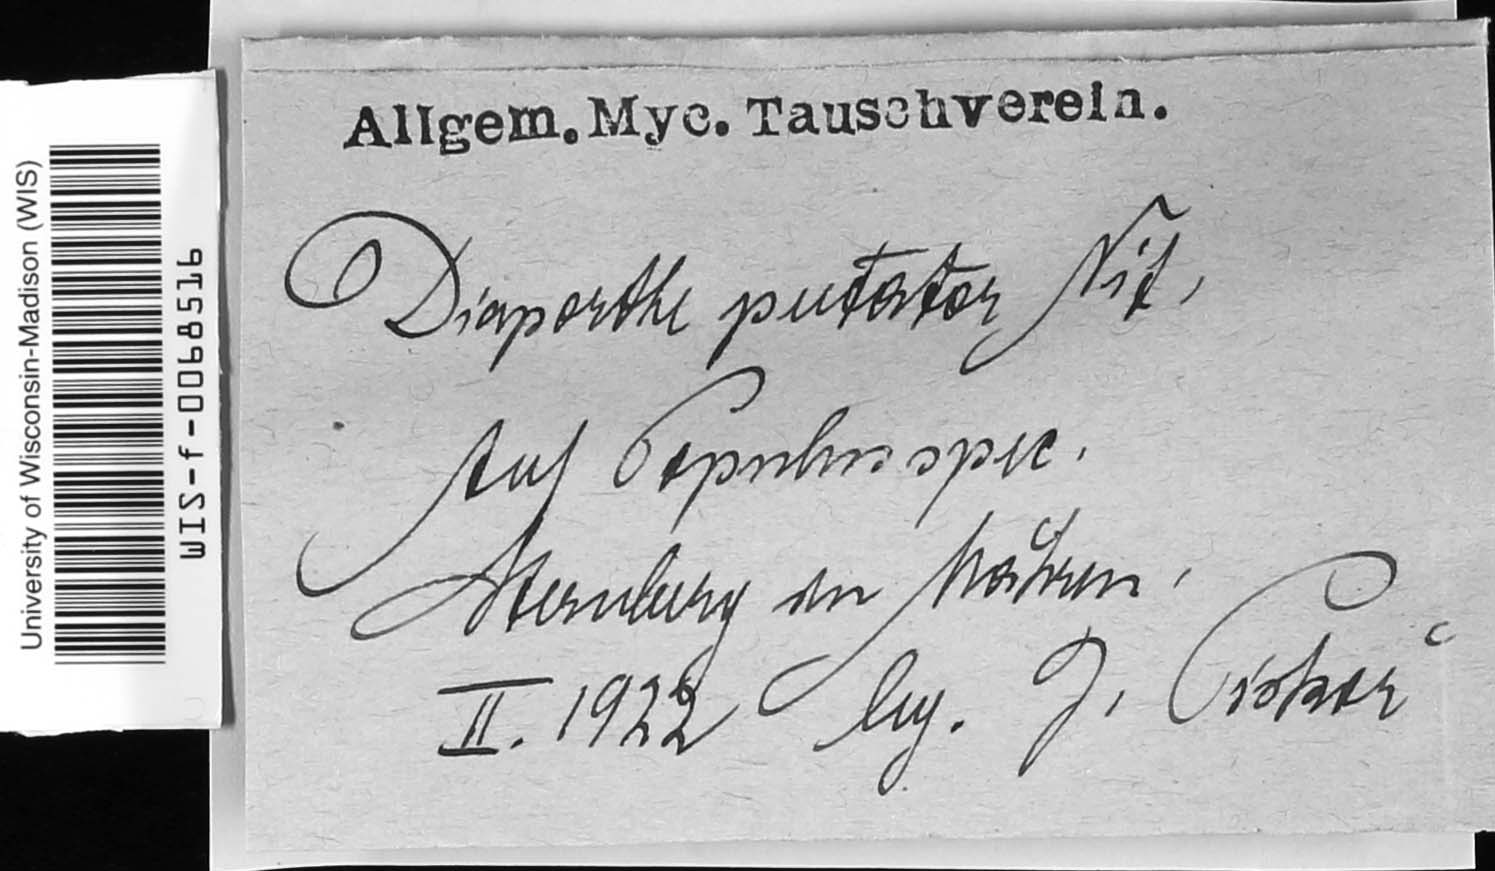 University of Wisconsin-Madison (WIS)
WIS-f-0068516
Allgem. Myc. Tauschverein.
Diaporthe putator Nit,
Auf Populus spec.
Sternberg in Mähren.
II. 1922 leg. J. Piskoř